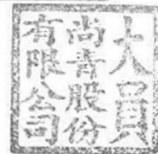 大員
尚青股份
有限公司